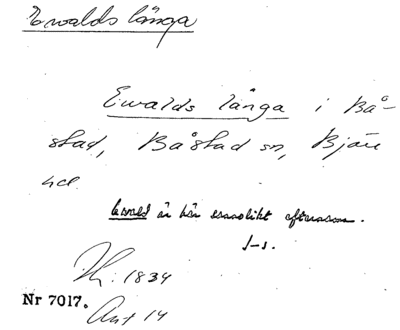 Ewalds långa
Ewalds långa i Bå-
stad, Båstad sn, Bjäre
hd.
Ewald är här sannolikt efternamn.
J-s.
Th. 1834
Nr 7017.
Ant 14